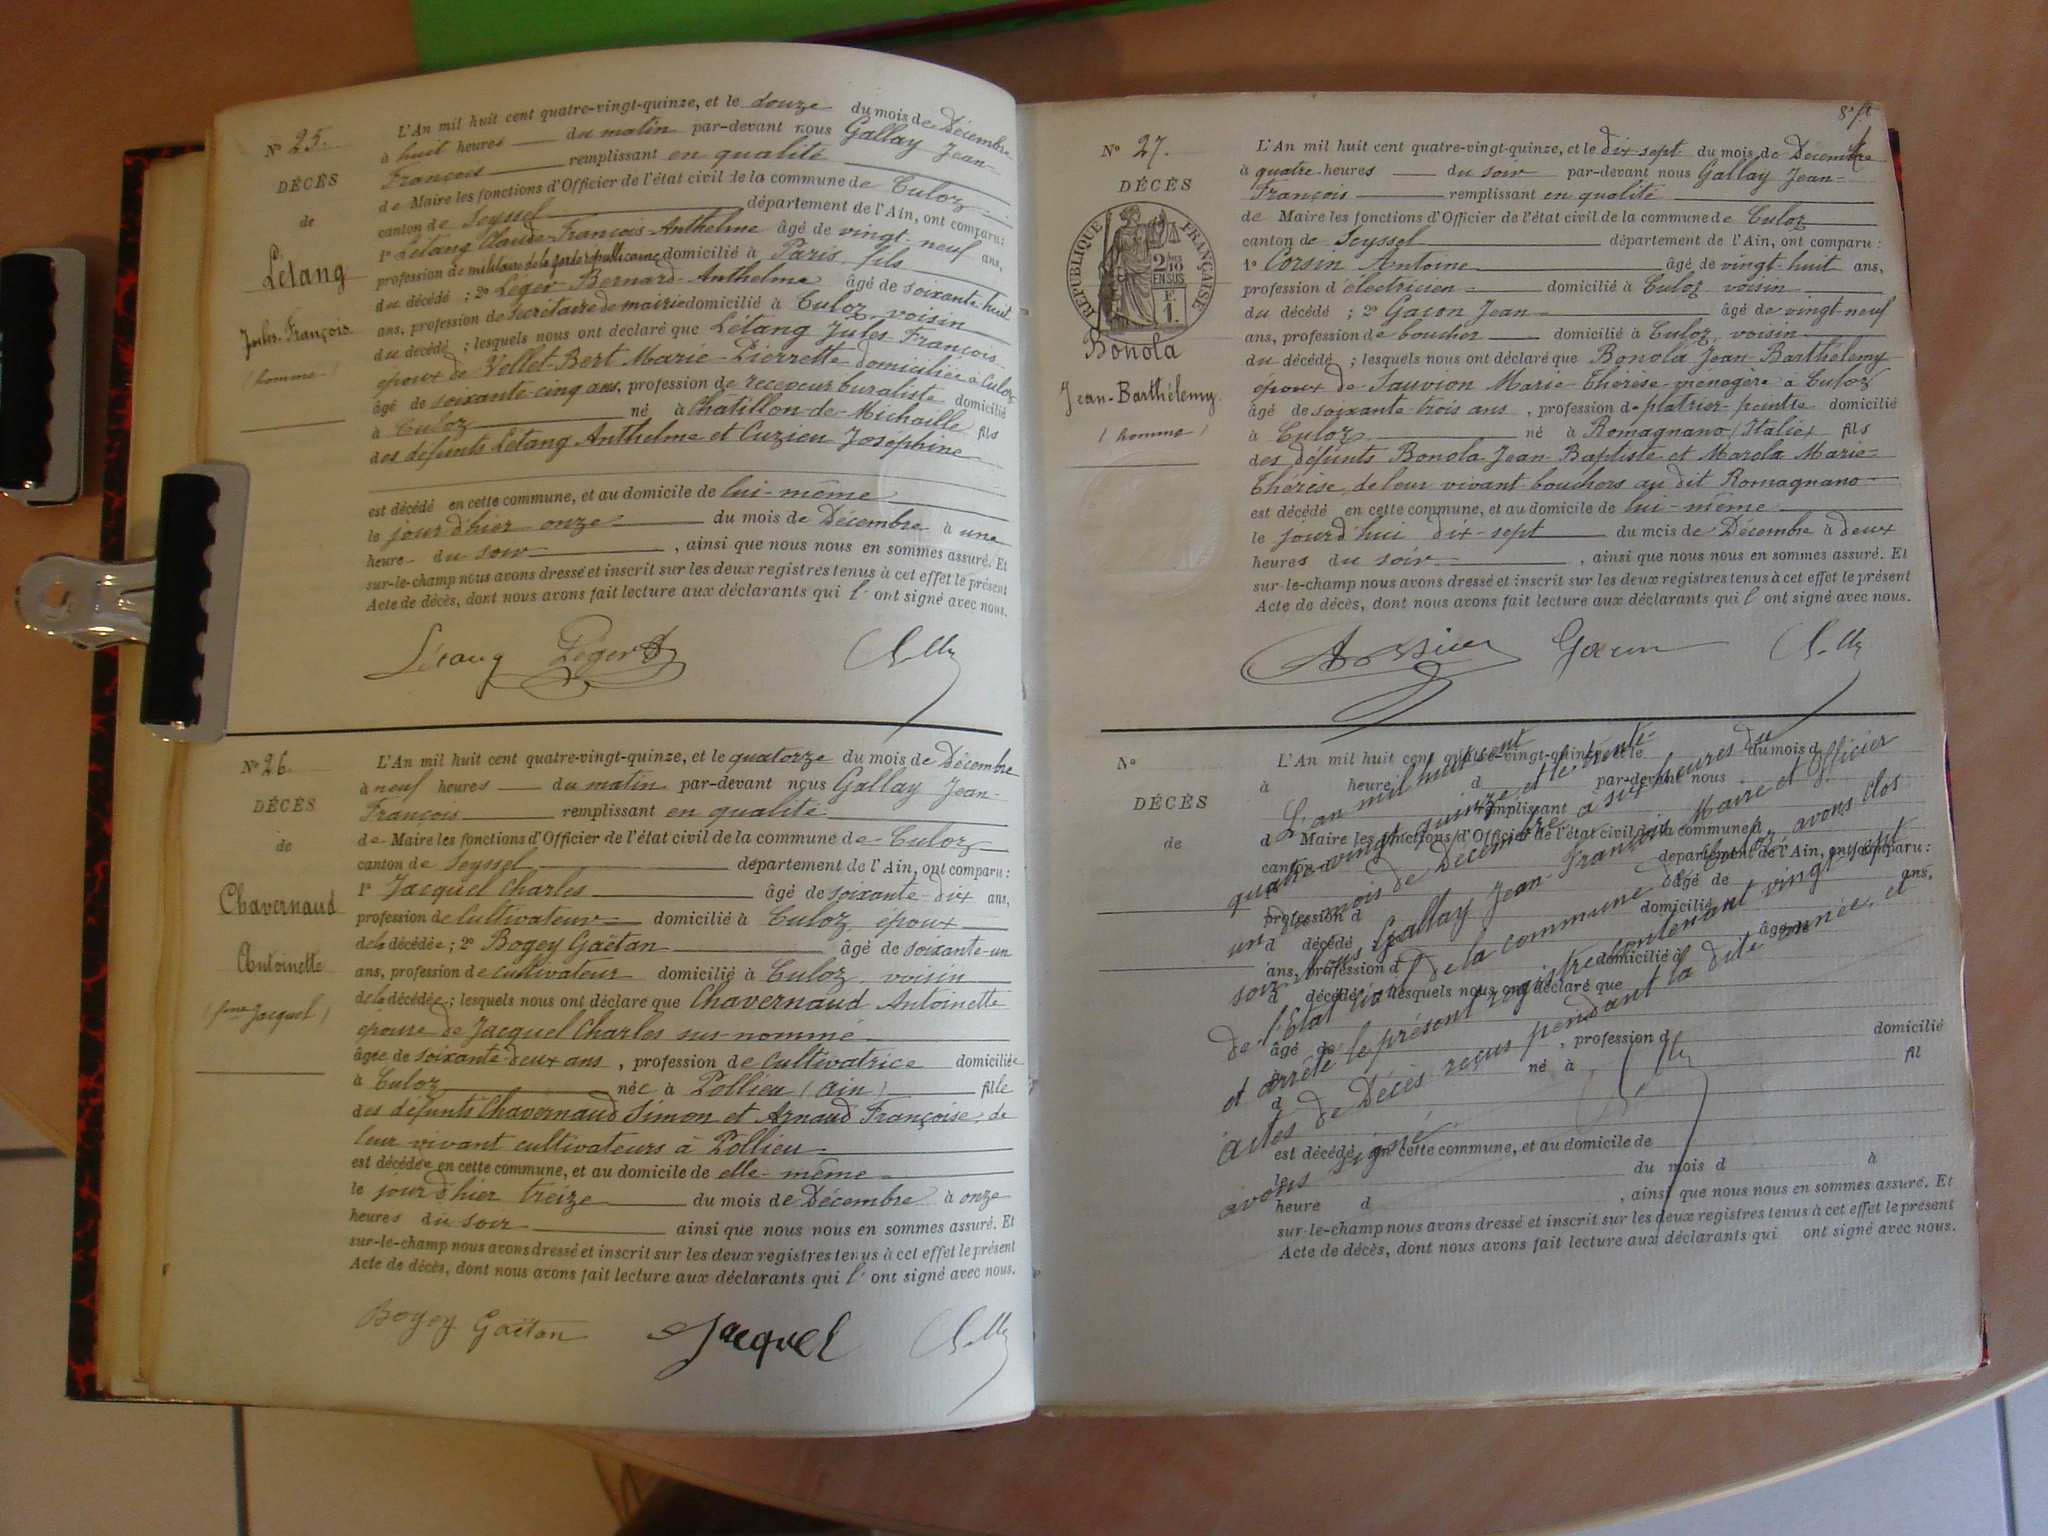 N° 25.
DÉCÈS
de
Létang
Jules-François
(homme)
L'An mil huit cent quatre-vingt-quinze, et le douze du mois de Décembre
à huit heures du matin par-devant nous Gallay Jean-
François remplissant en qualité
de Maire les fonctions d'Officier de l'état civil de la commune de Culoz
canton de Seyssel département de l'Ain, ont comparu:
1° Létang Claude-François-Anthelme âgé de vingt-neuf ans,
profession de militaire de la garde républicaine domicilié à Paris, fils
du décédé ; 2° Léger Bernard-Anthelme âgé de soixante-huit
ans, profession de Secrétaire de mairie domicilié à Culoz, voisin
du décédé ; lesquels nous ont déclaré que Létang Jules-François
époux de Vellet-Bert Marie-Pierrette domiciliée à Culoz
âgé de soixante-cinq ans, profession de receveur buraliste domicilié
à Culoz né à Châtillon-de-Michaille fils
des défunts Létang Anthelme et Cuzieu Joséphine
est décédé en cette commune, et au domicile de lui-même
le jour d'hier onze du mois de Décembre à une
heure du soir, ainsi que nous nous en sommes assuré. Et
sur-le-champ nous avons dressé et inscrit sur les deux registres tenus à cet effet le présent
Acte de décès, dont nous avons fait lecture aux déclarants qui l' ont signé avec nous.
Létang Léger B
N° 26.
DÉCÈS
de
Chavernaud
Antoinette
(fme Jacquel)
L'An mil huit cent quatre-vingt-quinze, et le quatorze du mois de Décembre
à neuf heures du matin par-devant nous Gallay Jean-
François remplissant en qualité
de Maire les fonctions d'Officier de l'état civil de la commune de Culoz
canton de Seyssel département de l'Ain, ont comparu:
1° Jacquel Charles âgé de soixante-dix ans,
profession de Cultivateur domicilié à Culoz, époux
de la décédée ; 2° Bogey Gaëtan âgé de soixante-un
ans, profession de cultivateur domicilié à Culoz, voisin
de la décédée ; lesquels nous ont déclaré que Chavernaud Antoinette
épouse de Jacquel Charles sus-nommé
âgée de soixante-deux ans, profession de cultivatrice domiciliée
à Culoz née à Pollieu (Ain) fille
des défunts Chavernaud Simon et Arnaud Françoise, de
leur vivant cultivateurs à Pollieu
est décédée en cette commune, et au domicile de elle-même
le jour d'hier treize du mois de Décembre à onze
heures du soir ainsi que nous nous en sommes assuré. Et
sur-le-champ nous avons dressé et inscrit sur les deux registres tenus à cet effet le présent
Acte de décès, dont nous avons fait lecture aux déclarants qui l' ont signé avec nous.
Bogey Gaëtan Jacquel
N° 27.
DÉCÈS
RÉPUBLIQUE FRANÇAISE
2/10 EN SUS
F. 1.
Bonola
Jean-Barthélemy
(homme)
L'An mil huit cent quatre-vingt-quinze, et le dix-sept du mois de Décembre
à quatre heures du soir par-devant nous Gallay Jean-
François remplissant en qualité
de Maire les fonctions d'Officier de l'état civil de la commune de Culoz
canton de Seyssel département de l'Ain, ont comparu :
1° Corsin Antoine âgé de vingt-huit ans,
profession d'électricien domicilié à Culoz, voisin
du décédé ; 2° Gacon Jean âgé de vingt-neuf
ans, profession de boucher domicilié à Culoz, voisin
du décédé ; lesquels nous ont déclaré que Bonola Jean-Barthélemy
époux de Sauvion Marie-Thérèse ménagère à Culoz
âgé de soixante-trois ans, profession de platrier-peintre domicilié
à Culoz né à Romagnano (Italie) fils
des défunts Bonola Jean-Baptiste et Marola Marie-
Thérèse, de leur vivant bouchers au dit Romagnano
est décédé en cette commune, et au domicile de lui-même
le jourd'hui dix-sept du mois de Décembre à deux
heures du soir, ainsi que nous nous en sommes assuré. Et
sur-le-champ nous avons dressé et inscrit sur les deux registres tenus à cet effet le présent
Acte de décès, dont nous avons fait lecture aux déclarants qui l' ont signé avec nous.
Gacon
N°
DÉCÈS
de
L'An mil huit cent quatre-vingt-quinze, et le du mois d
à heure d par-devant nous
remplissant
d Maire les fonctions d'Officier de l'état civil de la commune d
canton d département de l'Ain, ont comparu :
âgé de ans,
profession d domicilié
d décédé âgé de
ans, profession d domicilié à
d décédé ; lesquels nous ont déclaré que
âgé de , profession d domicilié
à né à fil
d
est décédé en cette commune, et au domicile de
le du mois d à
heure d , ainsi que nous nous en sommes assuré. Et
sur-le-champ nous avons dressé et inscrit sur les deux registres tenus à cet effet le présent
Acte de décès, dont nous avons fait lecture aux déclarants qui ont signé avec nous.
L'an mil huit cent
quatre-vingt quinze et le trente-
un du mois de Décembre à six heures du
soir Nous Gallay Jean-François Maire et Officier
de l'Etat civil de la commune de Culoz avons clos
et arrêté le présent registre contenant vingt-sept
actes de Décès reçus pendant la dite année, et
avons signé